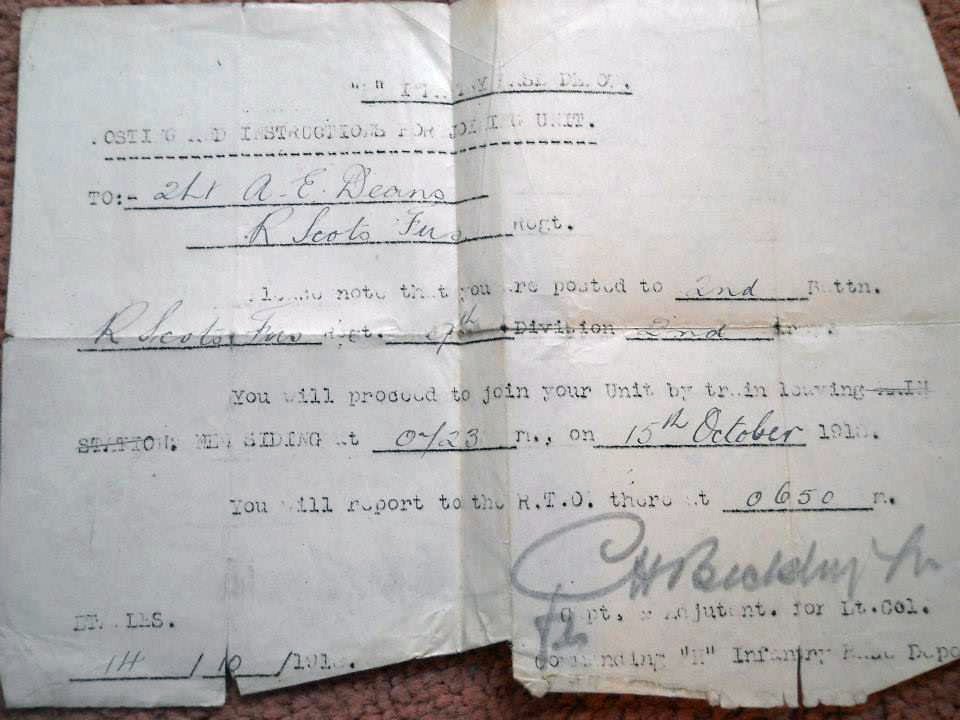 "" INFANTRY BASE DEPOT.
POSTING AND INSTRUCTIONS FOR JOINING UNIT.
TO:- 2Lt A. E. Deans
R Scots Fus Regt.
Please note that you are posted to 2nd Battn.
R Scots Fus Regt. Division 2nd
You will proceed to join your Unit by train leaving MAIN
STATION. NEW SIDING at 0723 m., on 15th October 1918.
You will report to the R.T.O. there at 0650 m.
Capt, & Adjutant. for Lt.Col.
ETAPLES. Commanding Infantry Base Depo
14 / 10 /1918.